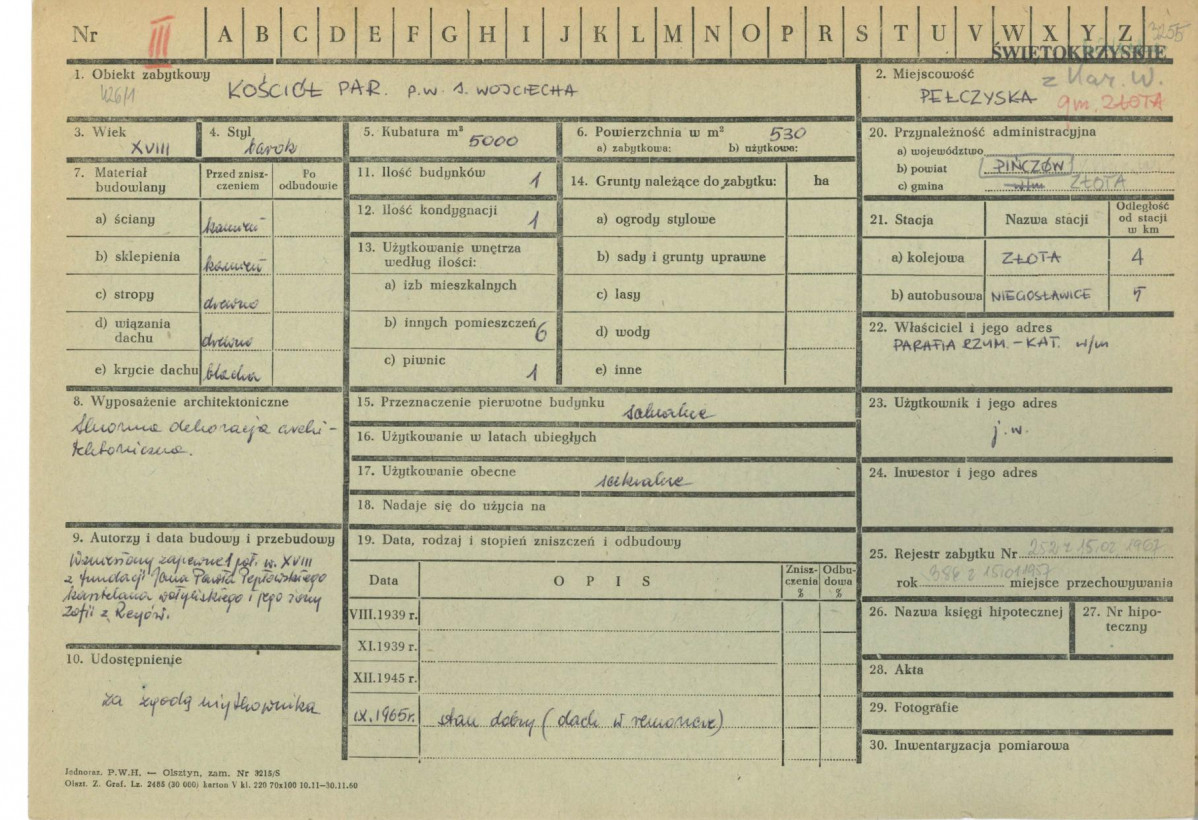 Nr III A B C D E F G H I J K L M N O P R S T U V W X Y Z 3255
ŚWIĘTOKRZYSKIE
1. Obiekt zabytkowy
426/1
KOŚCIÓŁ PAR. P.W. S. WOJCIECHA
2. Miejscowość
z Kaz. W.
PEŁCZYSKA gm. ZŁOTA
3. Wiek
XVIII
4. Styl
barok
5. Kubatura m³
5000
6. Powierzchnia w m² 530
a) zabytkowa: b) użytkowa:
7. Materiał budowlany
Przed zniszczeniem
Po odbudowie
a) ściany kamień
b) sklepienia kamień
c) stropy drewno
d) wiązania dachu drewno
e) krycie dachu blacha
8. Wyposażenie architektoniczne
Skromna dekoracja archi-
tektoniczna.
9. Autorzy i data budowy i przebudowy
Wzniesiony zapewne 1 poł. w. XVIII
z fundacji Jana Pawła Pepłowskiego
kasztelana wołyńskiego i jego żony
Zofii z Reyów.
10. Udostępnienie
za zgodą użytkownika
11. Ilość budynków 1
12. Ilość kondygnacji 1
13. Użytkowanie wnętrza
według ilości:
a) izb mieszkalnych
b) innych pomieszczeń 6
c) piwnic 1
14. Grunty należące do zabytku: ha
a) ogrody stylowe
b) sady i grunty uprawne
c) lasy
d) wody
e) inne
15. Przeznaczenie pierwotne budynku sakralne
16. Użytkowanie w latach ubiegłych
17. Użytkowanie obecne sakralne
18. Nadaje się do użycia na
19. Data, rodzaj i stopień zniszczeń i odbudowy
Data OPIS Zniszczenia % Odbudowa %
VIII.1939 r.
XI.1939 r.
XII.1945 r.
IX.1965r. stan dobry (dach w remoncie)
20. Przynależność administracyjna
a) województwo
b) powiat PIŃCZÓW
c) gmina w/m ZŁOTA
21. Stacja Nazwa stacji Odległość od stacji w km
a) kolejowa ZŁOTA 4
b) autobusowa NIEGOSŁAWICE 5
22. Właściciel i jego adres
PARAFIA RZYM.-KAT. w/m
23. Użytkownik i jego adres
j.w.
24. Inwestor i jego adres
25. Rejestr zabytku Nr 252 z 15.02 1967
rok 386 z 15.01 1957 miejsce przechowywania
26. Nazwa księgi hipotecznej
27. Nr hipo-
teczny
28. Akta
29. Fotografie
30. Inwentaryzacja pomiarowa
Jednoraz. P.W.H. — Olsztyn, zam. Nr 3215/S
Olszt. Z. Graf. Lz. 2485 (30 000) karton V kl. 220 70x100 10.11—30.11.60